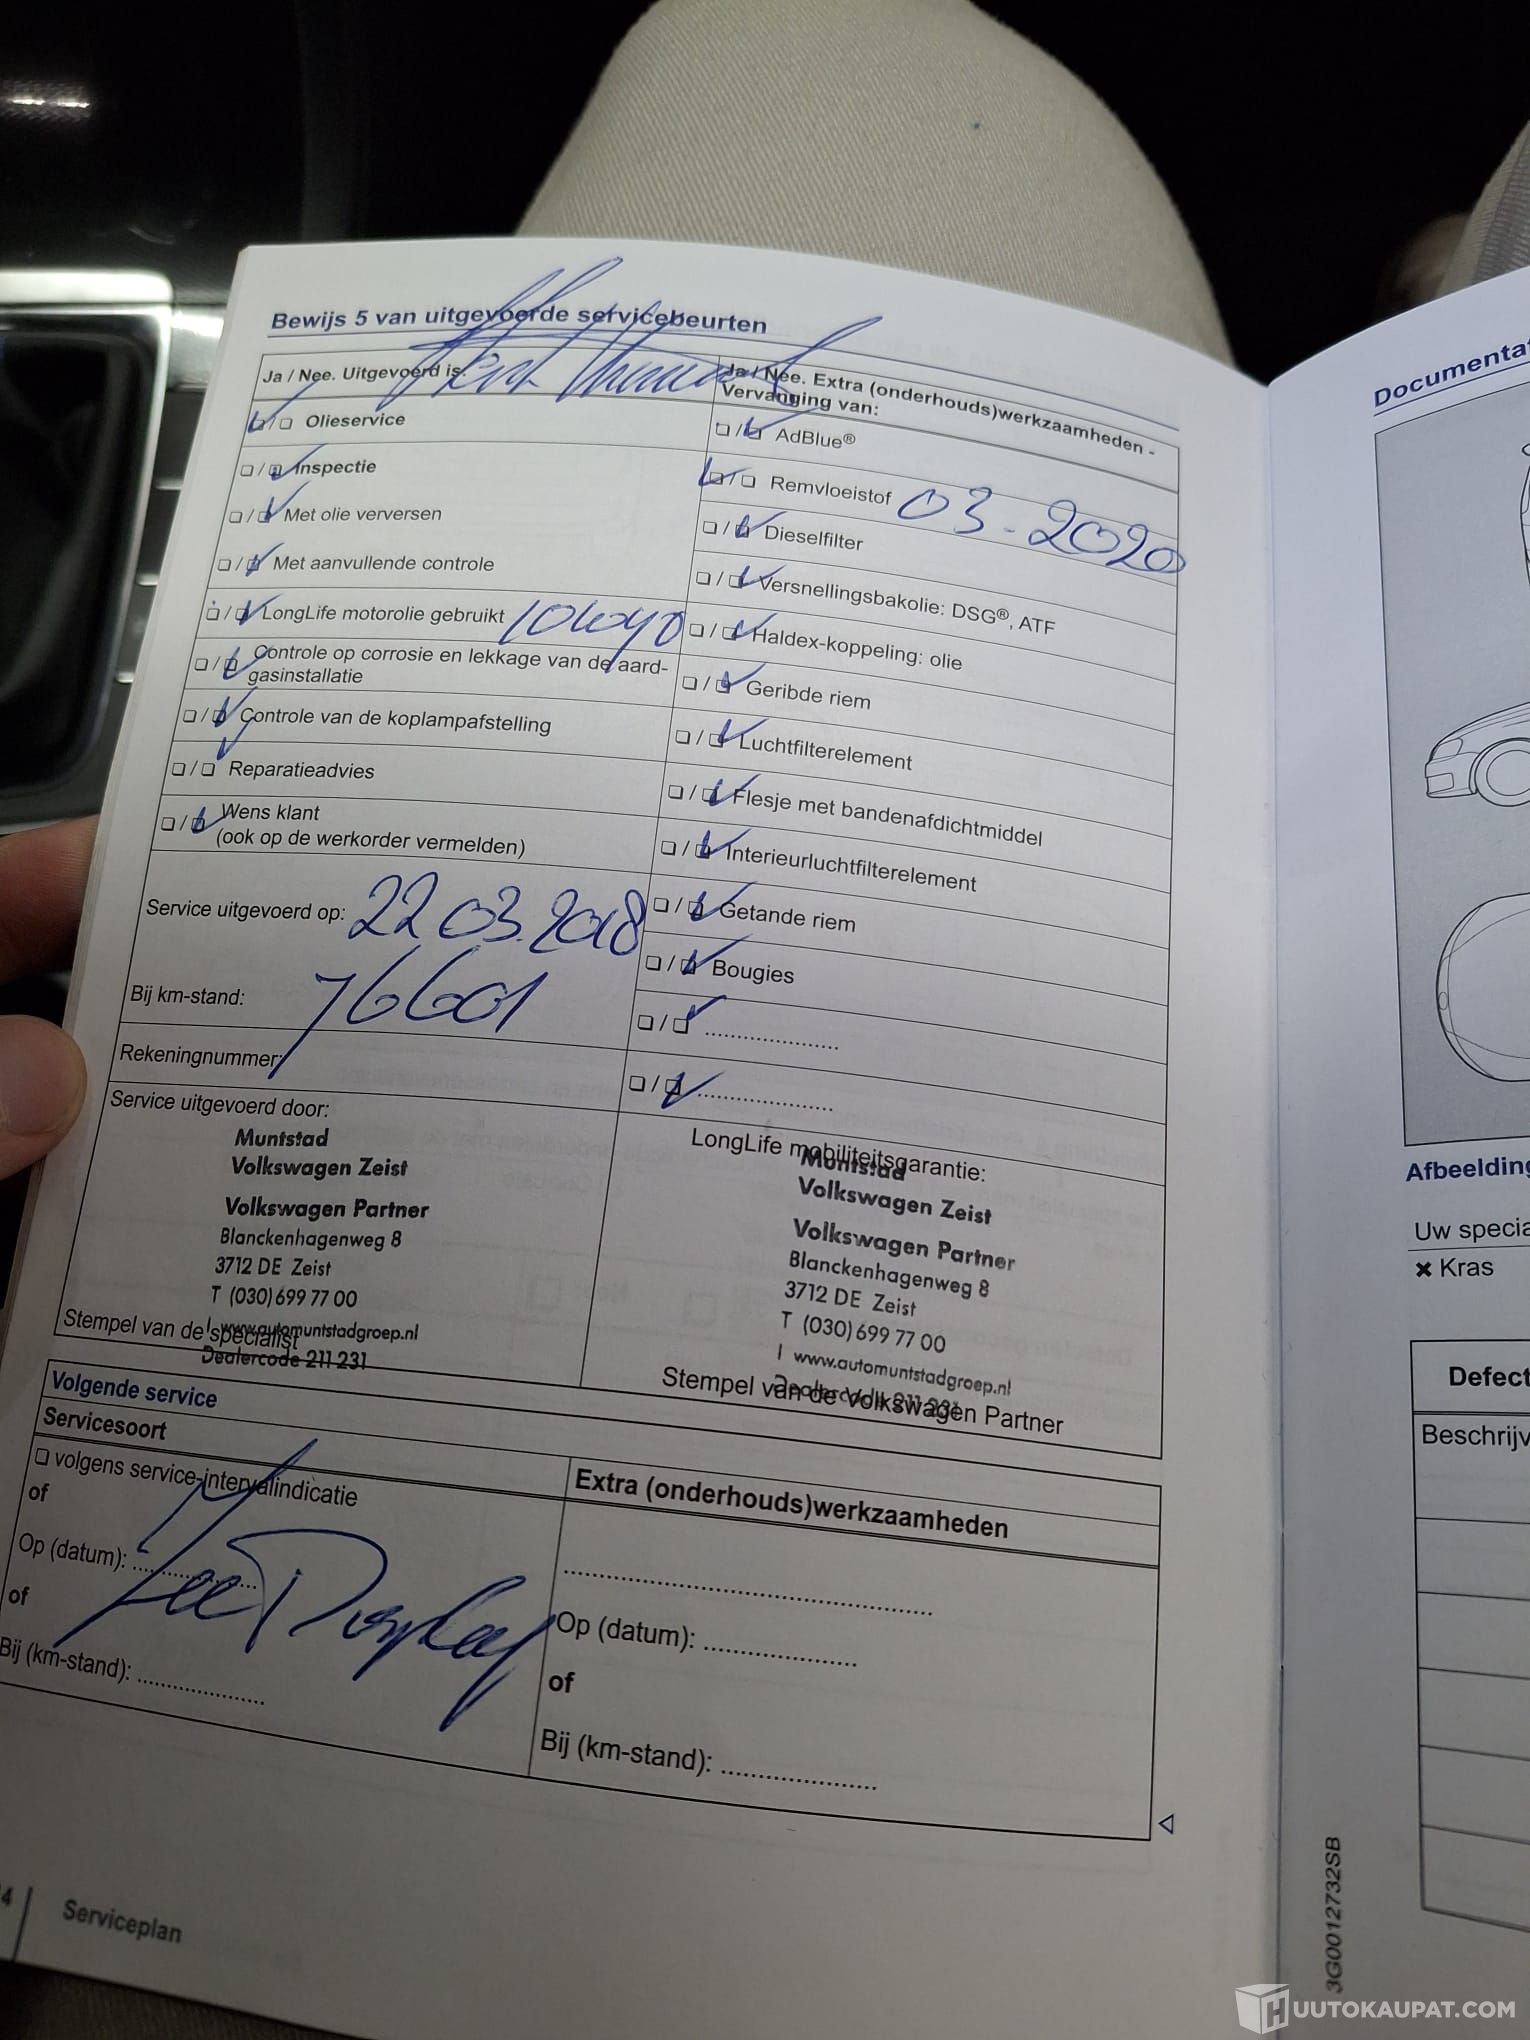 Bewijs 5 van uitgevoerde servicebeurten
Ja / Nee. Uitgevoerd is:
Olieservice
Inspectie
Met olie verversen
Met aanvullende controle
LongLife motorolie gebruikt
Controle op corrosie en lekkage van de aard-
gasinstallatie
Controle van de koplampafstelling
Reparatieadvies
Wens klant
(ook op de werkorder vermelden)
Service uitgevoerd op: 22 03.2018
Bij km-stand: 76601
Rekeningnummer:
Service uitgevoerd door:
Muntstad
Volkswagen Zeist
Volkswagen Partner
Blanckenhagenweg 8
3712 DE Zeist
T (030) 699 77 00
I www.automuntstadgroep.nl
Stempel van de specialist
Dealercode 211 231
Ja / Nee. Extra (onderhouds)werkzaamheden -
Vervanging van:
AdBlue®
Remvloeistof 03-2020
Dieselfilter
Versnellingsbakolie: DSG®, ATF
Haldex-koppeling: olie
Geribde riem
Luchtfilterelement
Flesje met bandenafdichtmiddel
Interieurluchtfilterelement
Getande riem
Bougies
LongLife mobiliteitsgarantie:
Muntstad
Volkswagen Zeist
Volkswagen Partner
Blanckenhagenweg 8
3712 DE Zeist
T (030) 699 77 00
I www.automuntstadgroep.nl
Dealercode 211 231
Stempel van de Volkswagen Partner
Volgende service
Servicesoort
volgens service-intervalindicatie
of
Op (datum):
of
Bij (km-stand):
Zee Display
Extra (onderhouds)werkzaamheden
Op (datum):
of
Bij (km-stand):
4
Serviceplan
Documenta
Afbeelding
Uw specia
Kras
Defect
Beschrijv
3G0012732SB
HUUTOKAUPAT.COM